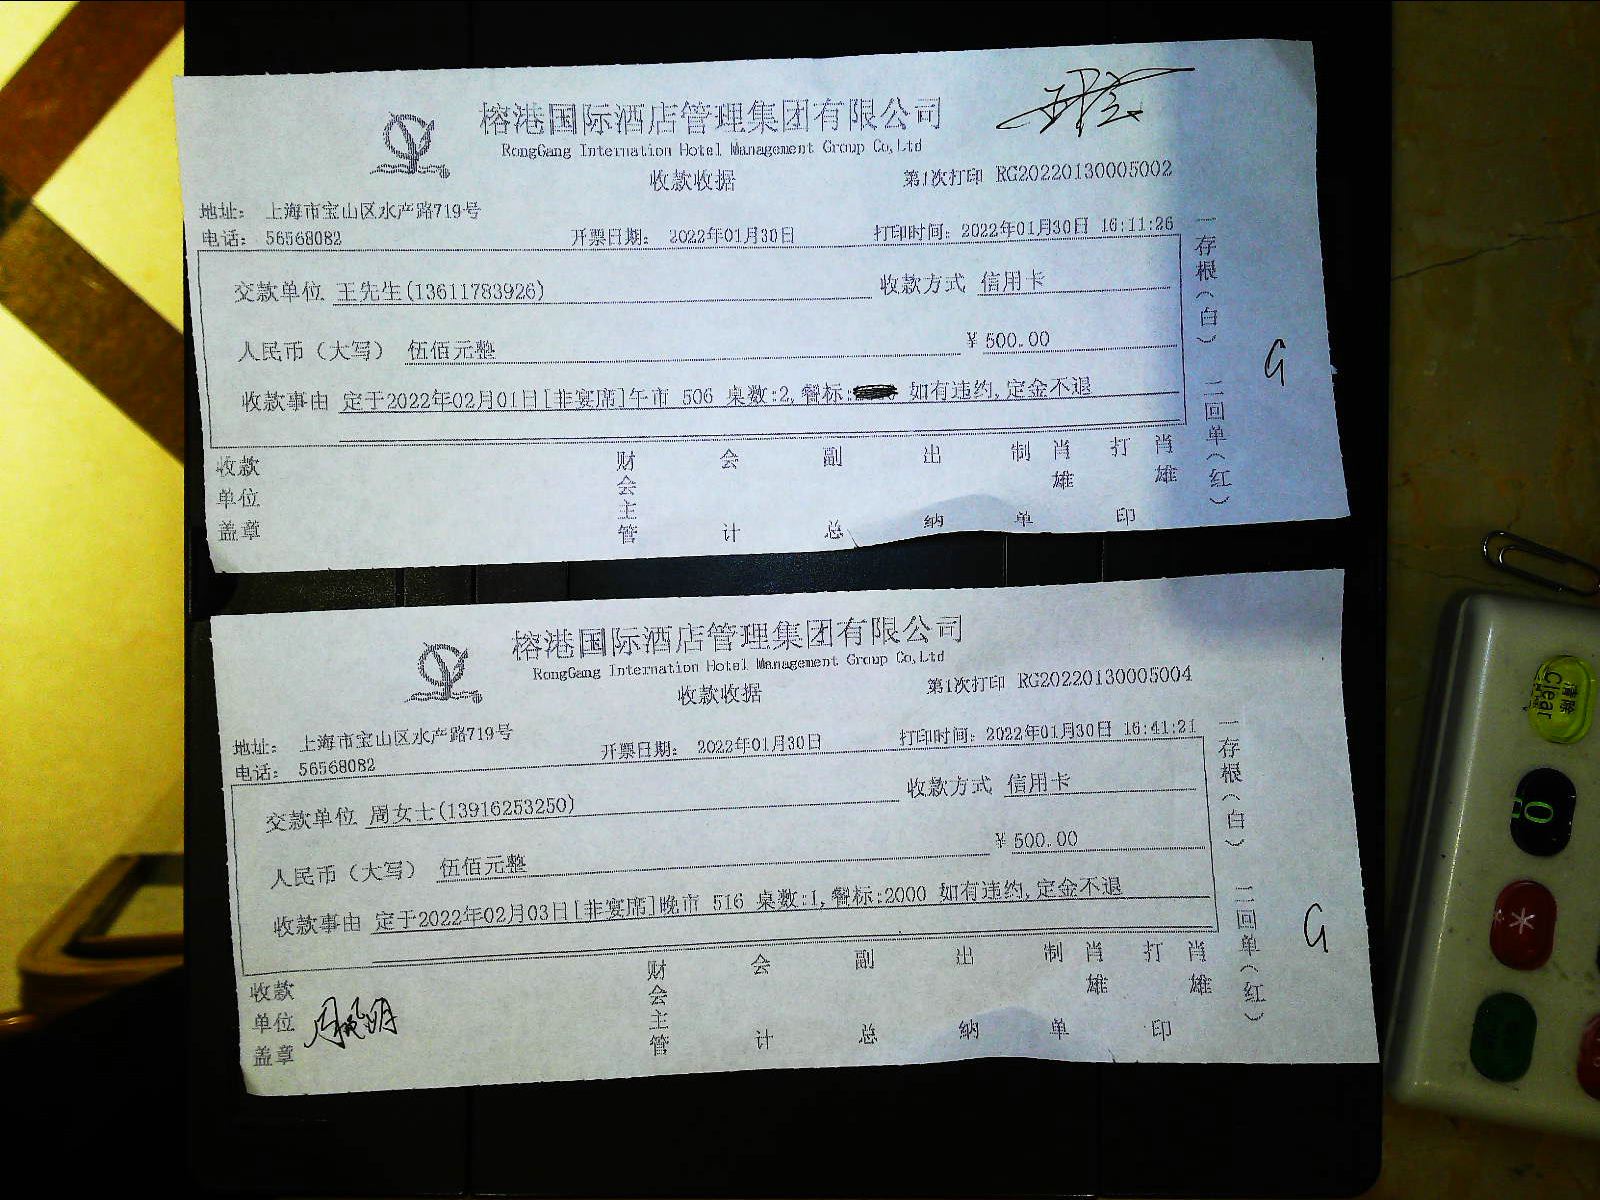 榕港国际酒店管理集团有限公司
RongGang Internation Hotel Management Group Co,Ltd
收款收据
第1次打印 RG20220130005002
地址： 上海市宝山区水产路719号
电话： 56568082
开票日期： 2022年01月30日
打印时间：2022年01月30日 16:11:26
交款单位 王先生(13611783926)
收款方式 信用卡
人民币（大写） 伍佰元整
¥500.00
收款事由 定于2022年02月01日[非宴席]午市 506 桌数:2,餐标: 如有违约,定金不退
收款单位盖章
财会主管
会计
副总
出纳
制单
肖雄
打印
肖雄
一存根（白） 二回单（红）
G
榕港国际酒店管理集团有限公司
RongGang Internation Hotel Management Group Co,Ltd
收款收据
第1次打印 RG20220130005004
地址： 上海市宝山区水产路719号
电话： 56568082
开票日期： 2022年01月30日
打印时间：2022年01月30日 16:41:21
交款单位 周女士(13916253250)
收款方式 信用卡
人民币（大写） 伍佰元整
¥500.00
收款事由 定于2022年02月03日[非宴席]晚市 516 桌数:1,餐标:2000 如有违约,定金不退
收款单位盖章
财会主管
会计
副总
出纳
制单
肖雄
打印
肖雄
一存根（白） 二回单（红）
G
清除
Clear
0
*